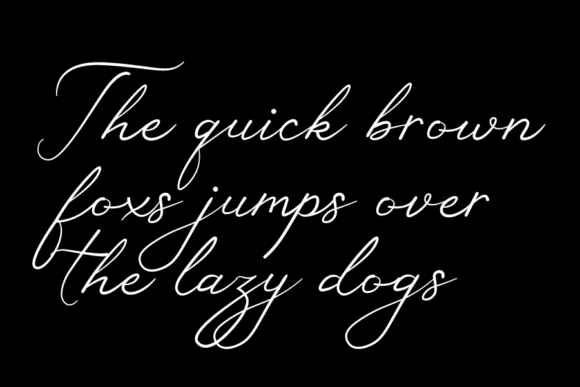 The quick brown
foxs jumps over
the lazy dogs